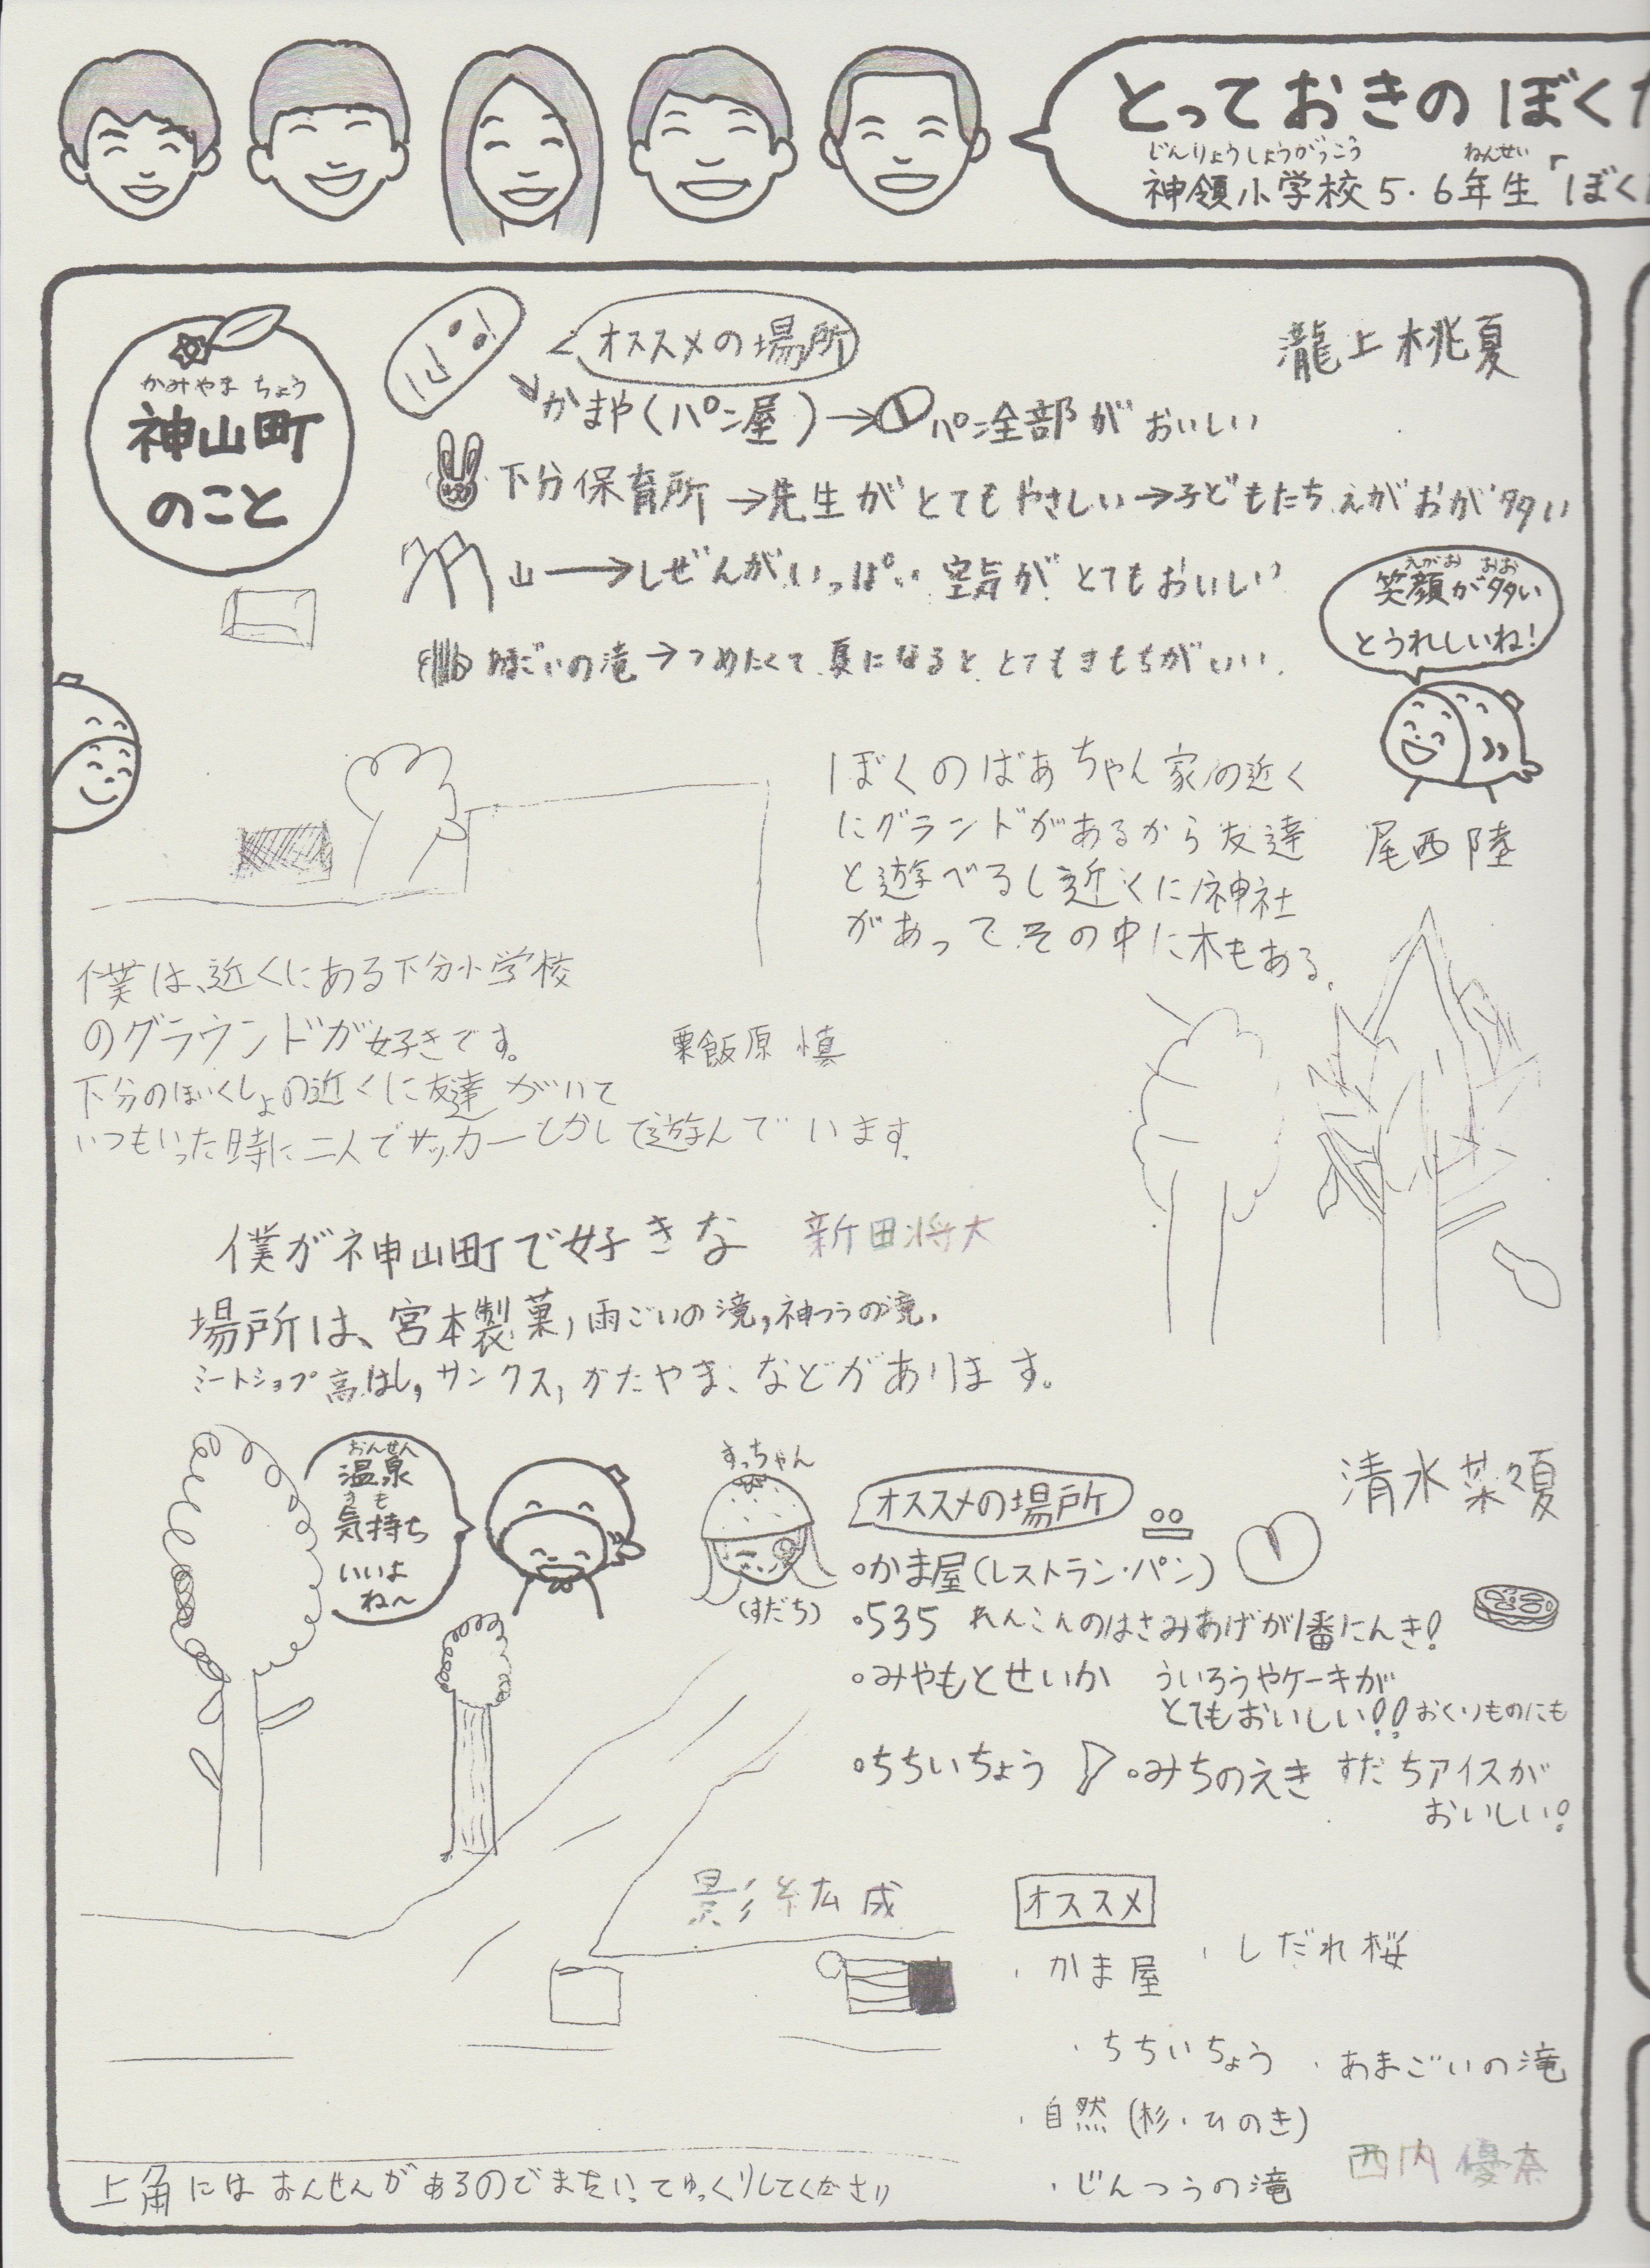 とっておきの ぼくた
じんりょうしょうがっこう ねんせい
神領小学校5・6年生「ぼくた
かみやま ちょう
神山町
のこと
オススメの場所
瀧上桃夏
かまや(パン屋)→パン全部がおいしい
下分保育所→先生がとてもやさしい→子どもたちえがおが多い
山→しぜんがいっぱい 空気がとてもおいしい
ごいの滝→つめたくて夏になるととてもきもちがいい.
えがお おお
笑顔が多い
とうれしいね!
ぼくのばあちゃん家の近く
にグランドがあるから友達
と遊べるし近くに神社
があってその中に木もある.
尾西陸
僕は、近くにある下分小学校
のグラウンドが好きです。
下分のほいくしょの近くに友達がいて
いつもいった時に二人でサッカーとかして遊んでいます.
粟飯原 慎
僕が神山町で好きな
新田将大
場所は、宮本製菓,雨ごいの滝,神つうの滝,
ミートショップ高はし,サンクス,かたやま、などがあります。
おんせん
温泉
きも
気持ち
いいよ
ね〜
すっちゃん
(すだち)
オススメの場所
清水菜々夏
・かま屋(レストラン・パン)
・535 れんこんのはさみあげが1番にんき!
・みやもとせいか ういろうやケーキが
とてもおいしい!!おくりものにも
・ちちいちょう ・みちのえき すだちアイスが
おいしい!
影絃成
オススメ
・かま屋 ・しだれ桜
・ちちいちょう ・あまごいの滝
・自然(杉・ひのき)
・じんつうの滝
西内優奈
上角にはおんせんがあるのでまたいってゆっくりしてください